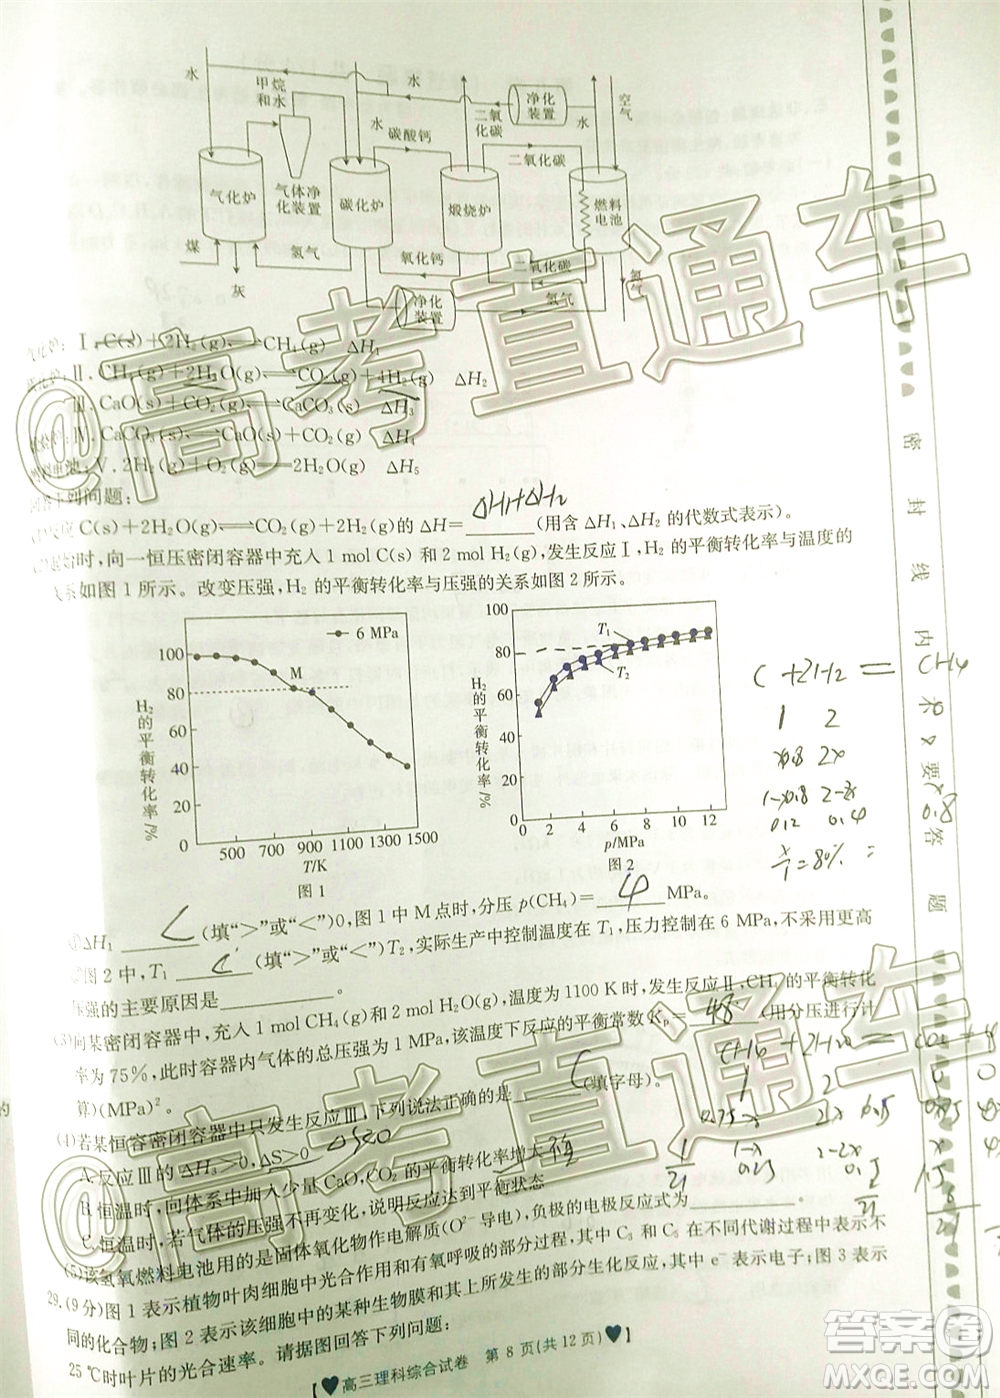 水
甲烷
和水
水
碳酸钙
水
二氧
化碳
净化
装置
水
空气
二氧化碳
气化炉
气体净
化装置
碳化炉
煅烧炉
燃料
电池
煤
灰
氢气
氧化钙
净化
装置
二氧化碳
氢气
氮气
气化炉:Ⅰ.C(s)+2H₂(g)⇌CH₄(g) ΔH₁
Ⅱ.CH₄(g)+2H₂O(g)⇌CO₂(g)+4H₂(g) ΔH₂
Ⅲ.CaO(s)+CO₂(g)⇌CaCO₃(s) ΔH₃
煅烧炉:Ⅳ.CaCO₃(s)⇌CaO(s)+CO₂(g) ΔH₄
燃料电池:Ⅴ.2H₂(g)+O₂(g)═2H₂O(g) ΔH₅
回答下列问题:
(1)反应C(s)+2H₂O(g)⇌CO₂(g)+2H₂(g)的ΔH= ΔH₁+ΔH₂ (用含ΔH₁、ΔH₂的代数式表示)。
(2)起始时,向一恒压密闭容器中充入1 mol C(s)和2 mol H₂(g),发生反应Ⅰ,H₂的平衡转化率与温度的
关系如图1所示。改变压强,H₂的平衡转化率与压强的关系如图2所示。
H₂的平衡转化率/%
100
80
60
40
20
0
6 MPa
M
500 700 900 1100 1300 1500
T/K
图1
H₂的平衡转化率/%
100
80
60
40
20
0
T₁
T₂
0 2 4 6 8 10 12
p/MPa
图2
C+2H₂=CH₄
1 2
x0.8 2x
1-x0.8 2-2x
0.12 0.4
x/1=80%
0.8
①ΔH₁ < (填“>”或“<”)0,图1中M点时,分压p(CH₄)= 4 MPa。
②图2中,T₁ < (填“>”或“<”)T₂,实际生产中控制温度在T₁,压力控制在6 MPa,不采用更高
压强的主要原因是________。
(3)向某密闭容器中,充入1 mol CH₄(g)和2 mol H₂O(g),温度为1100 K时,发生反应Ⅱ,CH₄的平衡转化
率为75%,此时容器内气体的总压强为1 MPa,该温度下反应的平衡常数Kp= 48 (用分压进行计
算)(MPa)²。
(4)若某恒容密闭容器中只发生反应Ⅲ,下列说法正确的是 C (填字母)。
A.反应Ⅲ的ΔH₃>0,ΔS>0
B.恒温时,向体系中加入少量CaO,CO₂的平衡转化率增大
C.恒温时,若气体的压强不再变化,说明反应达到平衡状态
(5)该氢氧燃料电池用的是固体氧化物作电解质(O²⁻导电),负极的电极反应式为________。
29.(9分)图1表示植物叶肉细胞中光合作用和有氧呼吸的部分过程,其中C₃和C₅在不同代谢过程中表示不
同的化合物;图2表示该细胞中的某种生物膜和其上发生的部分生化反应,其中e⁻表示电子;图3表示
25℃时叶片的光合速率。请据图回答下列问题:
【♥高三理科综合试卷 第8页(共12页)♥】
密封线内不要答题
@高考直通车
@高考直通车
答案圈
MXQE.COM